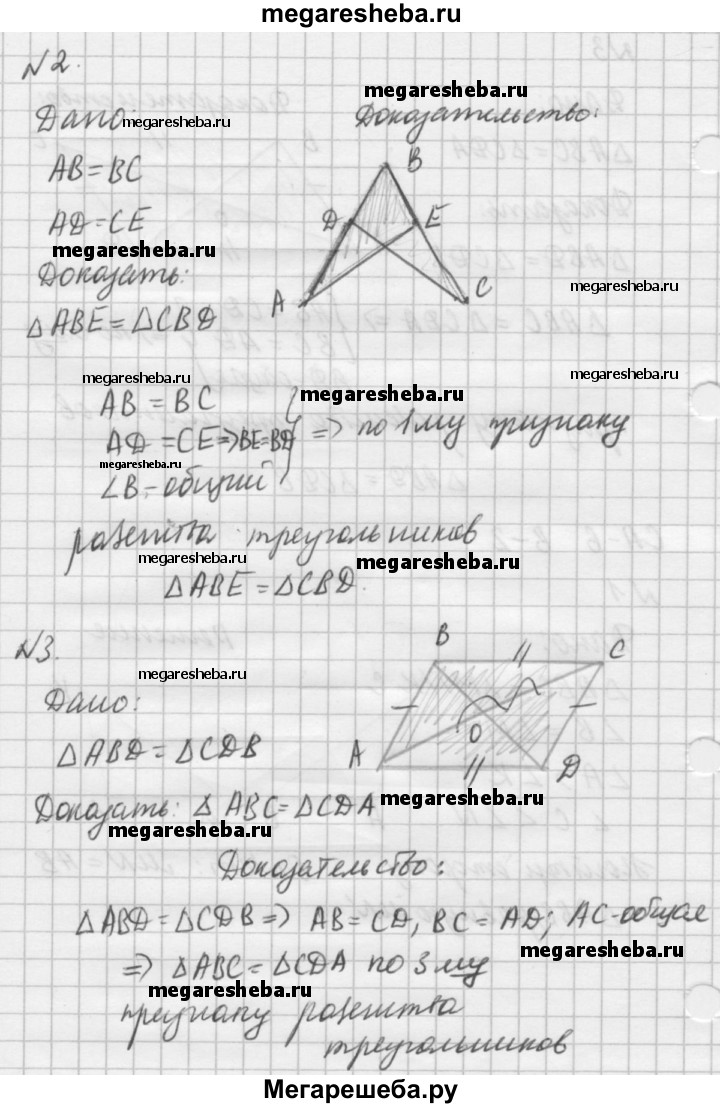 megaresheba.ru
№2.
megaresheba.ru
Дано megaresheba.ru
Доказательство:
AB = BC
B
AD = CE
D E
megaresheba.ru
Доказать:
megaresheba.ru
A C
△ABE = △CBD
megaresheba.ru megaresheba.ru
AB = BC
AD = CE ⇒ BE = BD } ⇒ по 1му признаку
megaresheba.ru
∠B - общий
равенства треугольников
megaresheba.ru megaresheba.ru
△ABE = △CBD.
№3.
B C
megaresheba.ru
Дано:
O
△ABD = △CDB
A D
Доказать: △ABC = △CDA
megaresheba.ru
megaresheba.ru
Доказательство:
△ABD = △CDB ⇒ AB = CD, BC = AD; AC - общая
megaresheba.ru
⇒ △ABC = △CDA по 3му
megaresheba.ru
признаку равенства
треугольников
Мегарешеба.ру